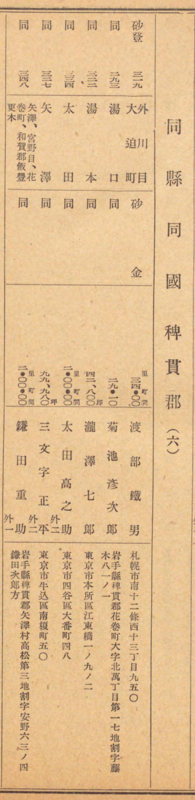 同縣同國稗貫郡（六）
砂登 三一九 外川目 大迫町 砂金 里町間 三四・〇〇 渡部鐵男 札幌市南十二條西十三丁目九五〇
同 二九三 湯口 同 二九・一〇 菊池彦次郎 岩手縣稗貫郡花巻町大字北萬丁目第一七地割字藤木八一ノ一
同 三二三 湯本 同 四二、八〇〇坪 瀧澤七郎 東京市本所區江東橋一ノ九ノ二
同 三四 太田 同 里町間 二・〇〇・〇〇 太田高之助 東京市四谷區大番町四八
同 三三七 矢澤 同 九九、九八〇坪 三文字正平 外二 東京市牛込區南榎町五〇
同 三四八 矢澤、宮野目、花巻町、和賀郡飯豊 更木 同 里町間 二・〇〇・〇〇 鎌田重助 外一 岩手縣稗貫郡矢澤村高松第三地割字安野六三ノ四 鎌田次郎方